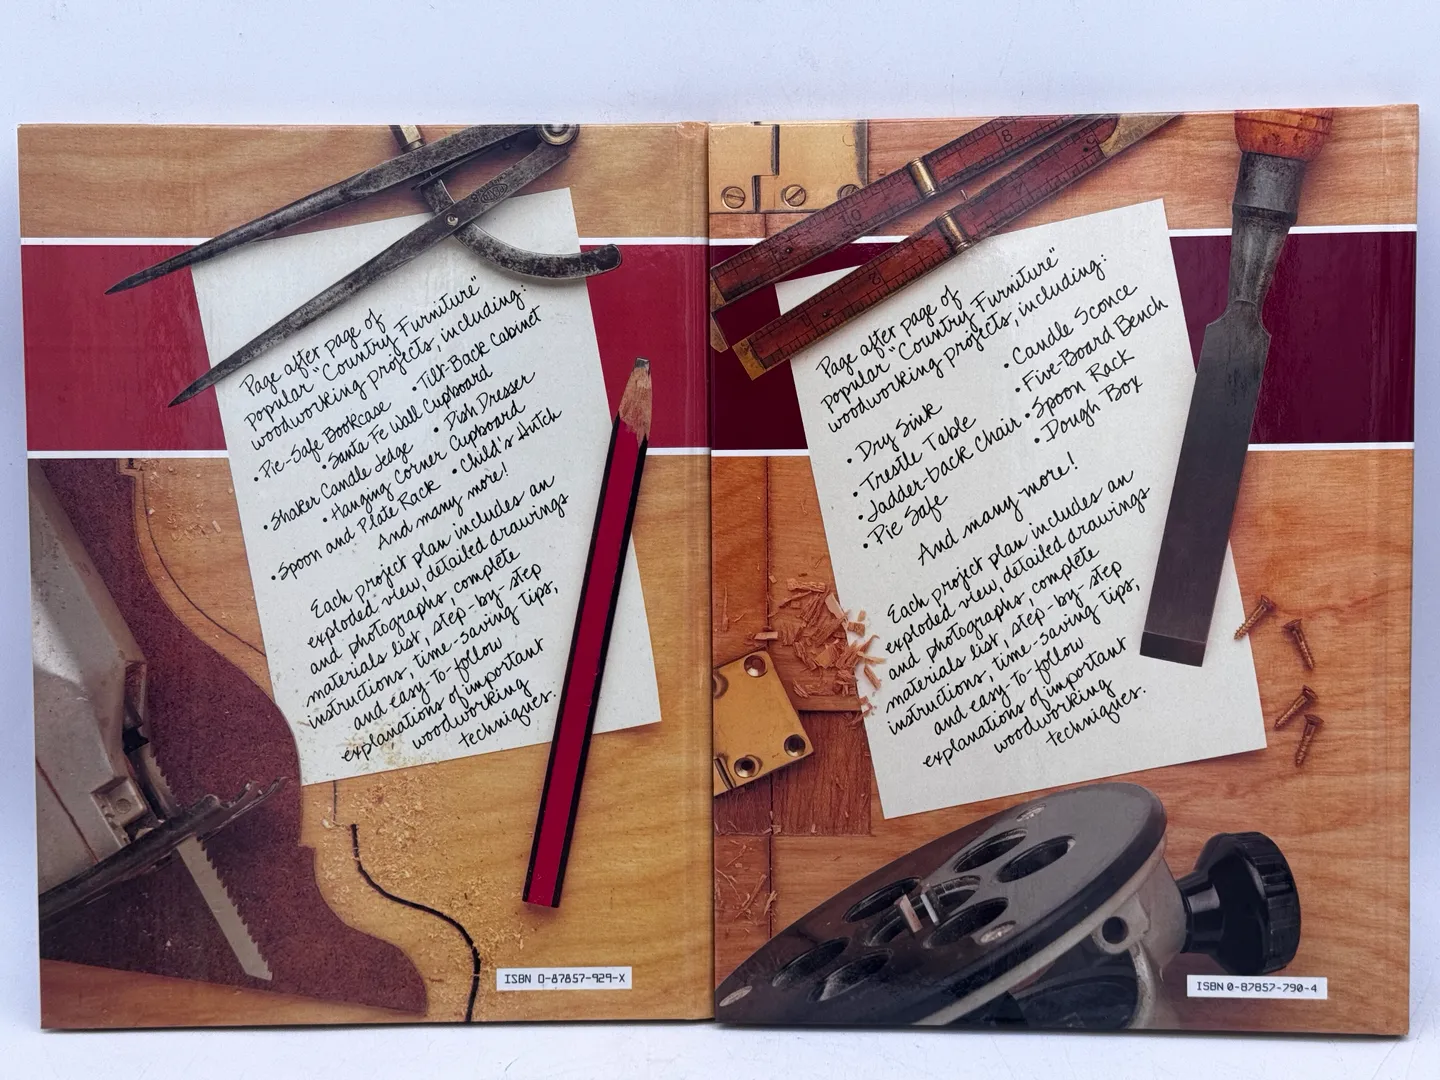 Page after page of
popular "Country Furniture"
woodworking projects, including:
• Pie-Safe Bookcase • Tilt-Back Cabinet
• Santa Fe Wall Cupboard
• Shaker Candle Ledge • Dish Dresser
• Hanging Corner Cupboard
• Spoon and Plate Rack • Child's Hutch
And many more!
Each project plan includes an
exploded view, detailed drawings
and photographs, complete
materials list, step-by-step
instructions, time-saving tips,
and easy-to-follow
explanations of important
woodworking
techniques.
ISBN 0-87857-929-X
Page after page of
popular "Country Furniture"
woodworking projects, including:
• Dry Sink
• Trestle Table
• Ladder-back Chair
• Pie Safe
• Candle Sconce
• Five-Board Bench
• Spoon Rack
• Dough Box
And many more!
Each project plan includes an
exploded view, detailed drawings
and photographs, complete
materials list, step-by-step
instructions, time-saving tips,
and easy-to-follow
explanations of important
woodworking
techniques.
ISBN 0-87857-790-4
10
8